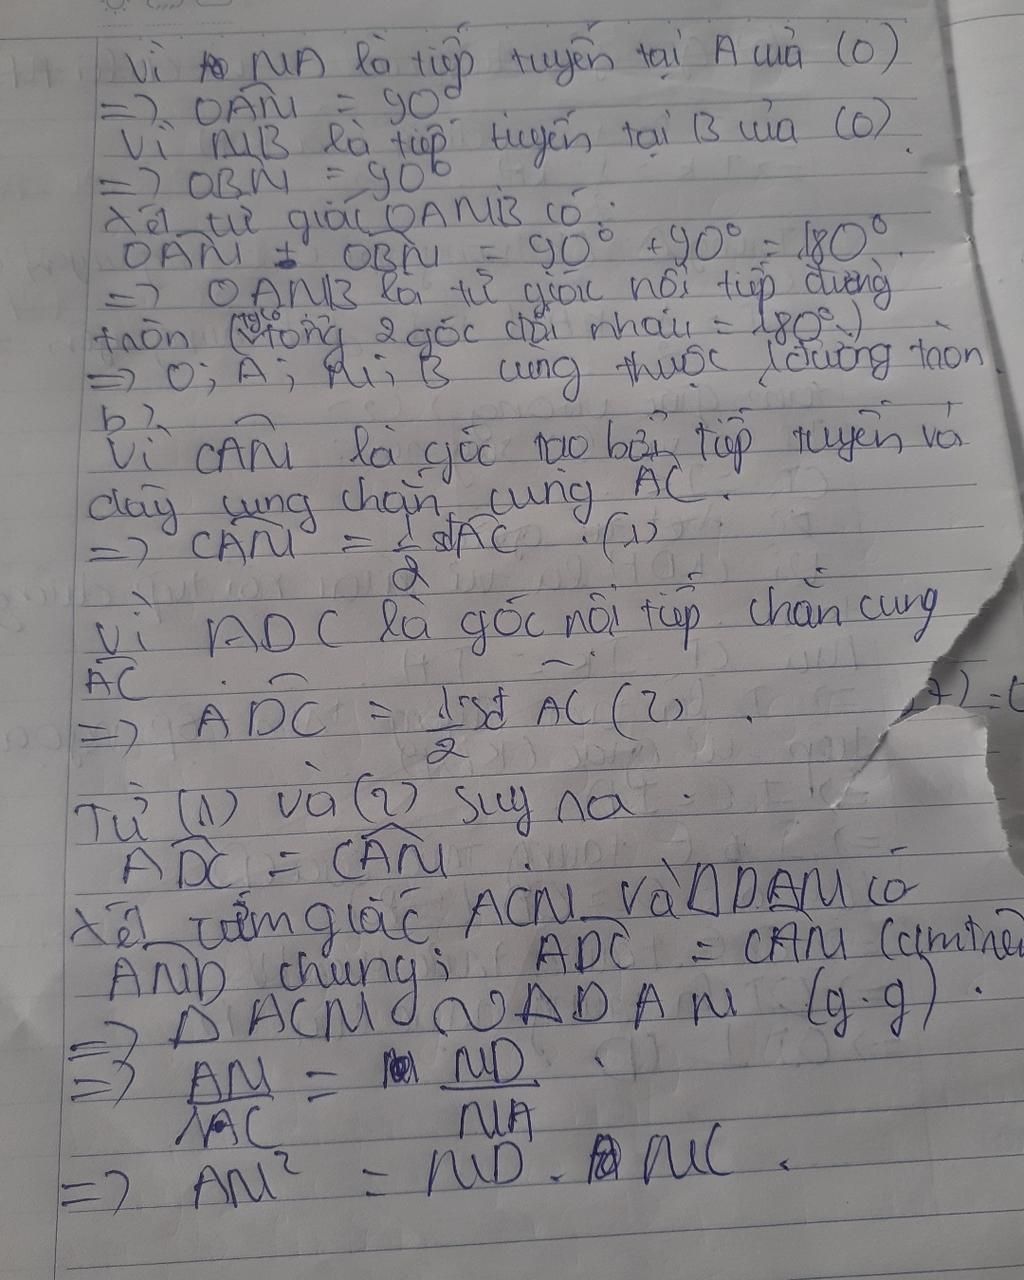 Vì MA là tiếp tuyến tại A của (O)
=> OÂM = 90°
Vì MB là tiếp tuyến tại B của (O).
=> OBM = 90°
Xét tứ giác OAMB có:
OÂM + OBM = 90° + 90° = 180°.
=> OAMB là tứ giác nội tiếp đường
tròn (tổng 2 góc đối nhau = 180°.)
=> O; A; M; B cùng thuộc 1 đường tròn.
b).
Vì CÂM là góc tạo bởi tiếp tuyến và
dây cung chắn cung AC.
=> CÂM = 1/2 sđ AC . (1)
Vì ADC là góc nội tiếp chắn cung
AC .
=> ADC = 1/2 sđ AC (2) .
Từ (1) và (2) suy ra .
ADC = CÂM .
Xét tam giác ACM và Δ DAM có
AMD chung; ADC = CAM (cmtrê
=> Δ ACM ∽ Δ DAM (g.g) .
=> AM/MC = MD/MA .
=> AM² = MD . MC .